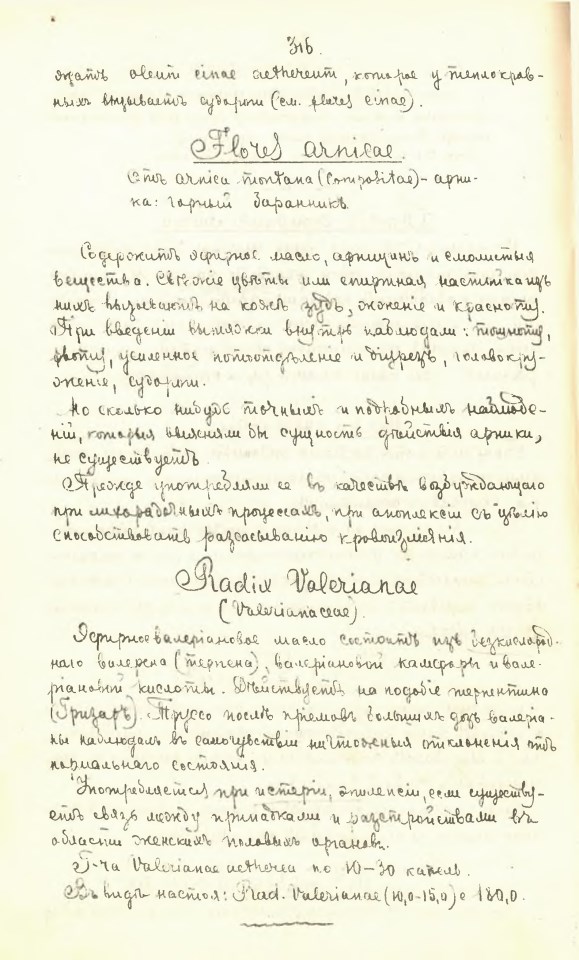 316.
жатъ oleum cinae aethereum, которое у теплокров-
ныхъ вызываетъ судороги (см. flores cinae).
Flores arnicae.
Отъ arnica montana (Compositae) - арни-
ка: горный баранникъ
Содержитъ эфирное масло, арницинъ и смолистыя
вещества. Свѣжіе цвѣты или спиртная настойка изъ
нихъ вызываютъ на кожѣ зудъ, жженіе и красноту.
При введеніи вытяжки внутрь наблюдали: тошноту,
рвоту, усиленное потоотдѣленіе и діурезъ, головокру-
женіе, судороги.
Но сколько нибудь точныхъ и подробныхъ наблюде-
ній, которыя выясняли бы сущность дѣйствія арники,
не существуетъ.
Прежде употребляли ее въ качествѣ возбуждающаго
при лихорадочныхъ процессахъ, при апоплексіи съ цѣлію
способствовать разсасыванію кровоизліянія.
Radix Valerianae
(Valerianaceae).
Эфирное валеріановое масло состоитъ изъ безкислород-
наго валерена (терпена), валеріановой камфоры и вале-
ріановой кислоты. Дѣйствуетъ на подобіе терпентина
(Гризаръ). Труссо послѣ пріемовъ большихъ дозъ валеріа-
ны наблюдалъ въ самочувствіи ничтожныя отклоненія отъ
нормальнаго состоянія.
Употребляется при истеріи, эпилепсіи, если существу-
етъ связь между припадками и разстройствами въ
области женскихъ половыхъ органовъ.
T-ra Valerianae aetherea по 10-30 капель.
Въ видѣ настоя: Rad. Valerianae (10,0-15,0) e 180,0.